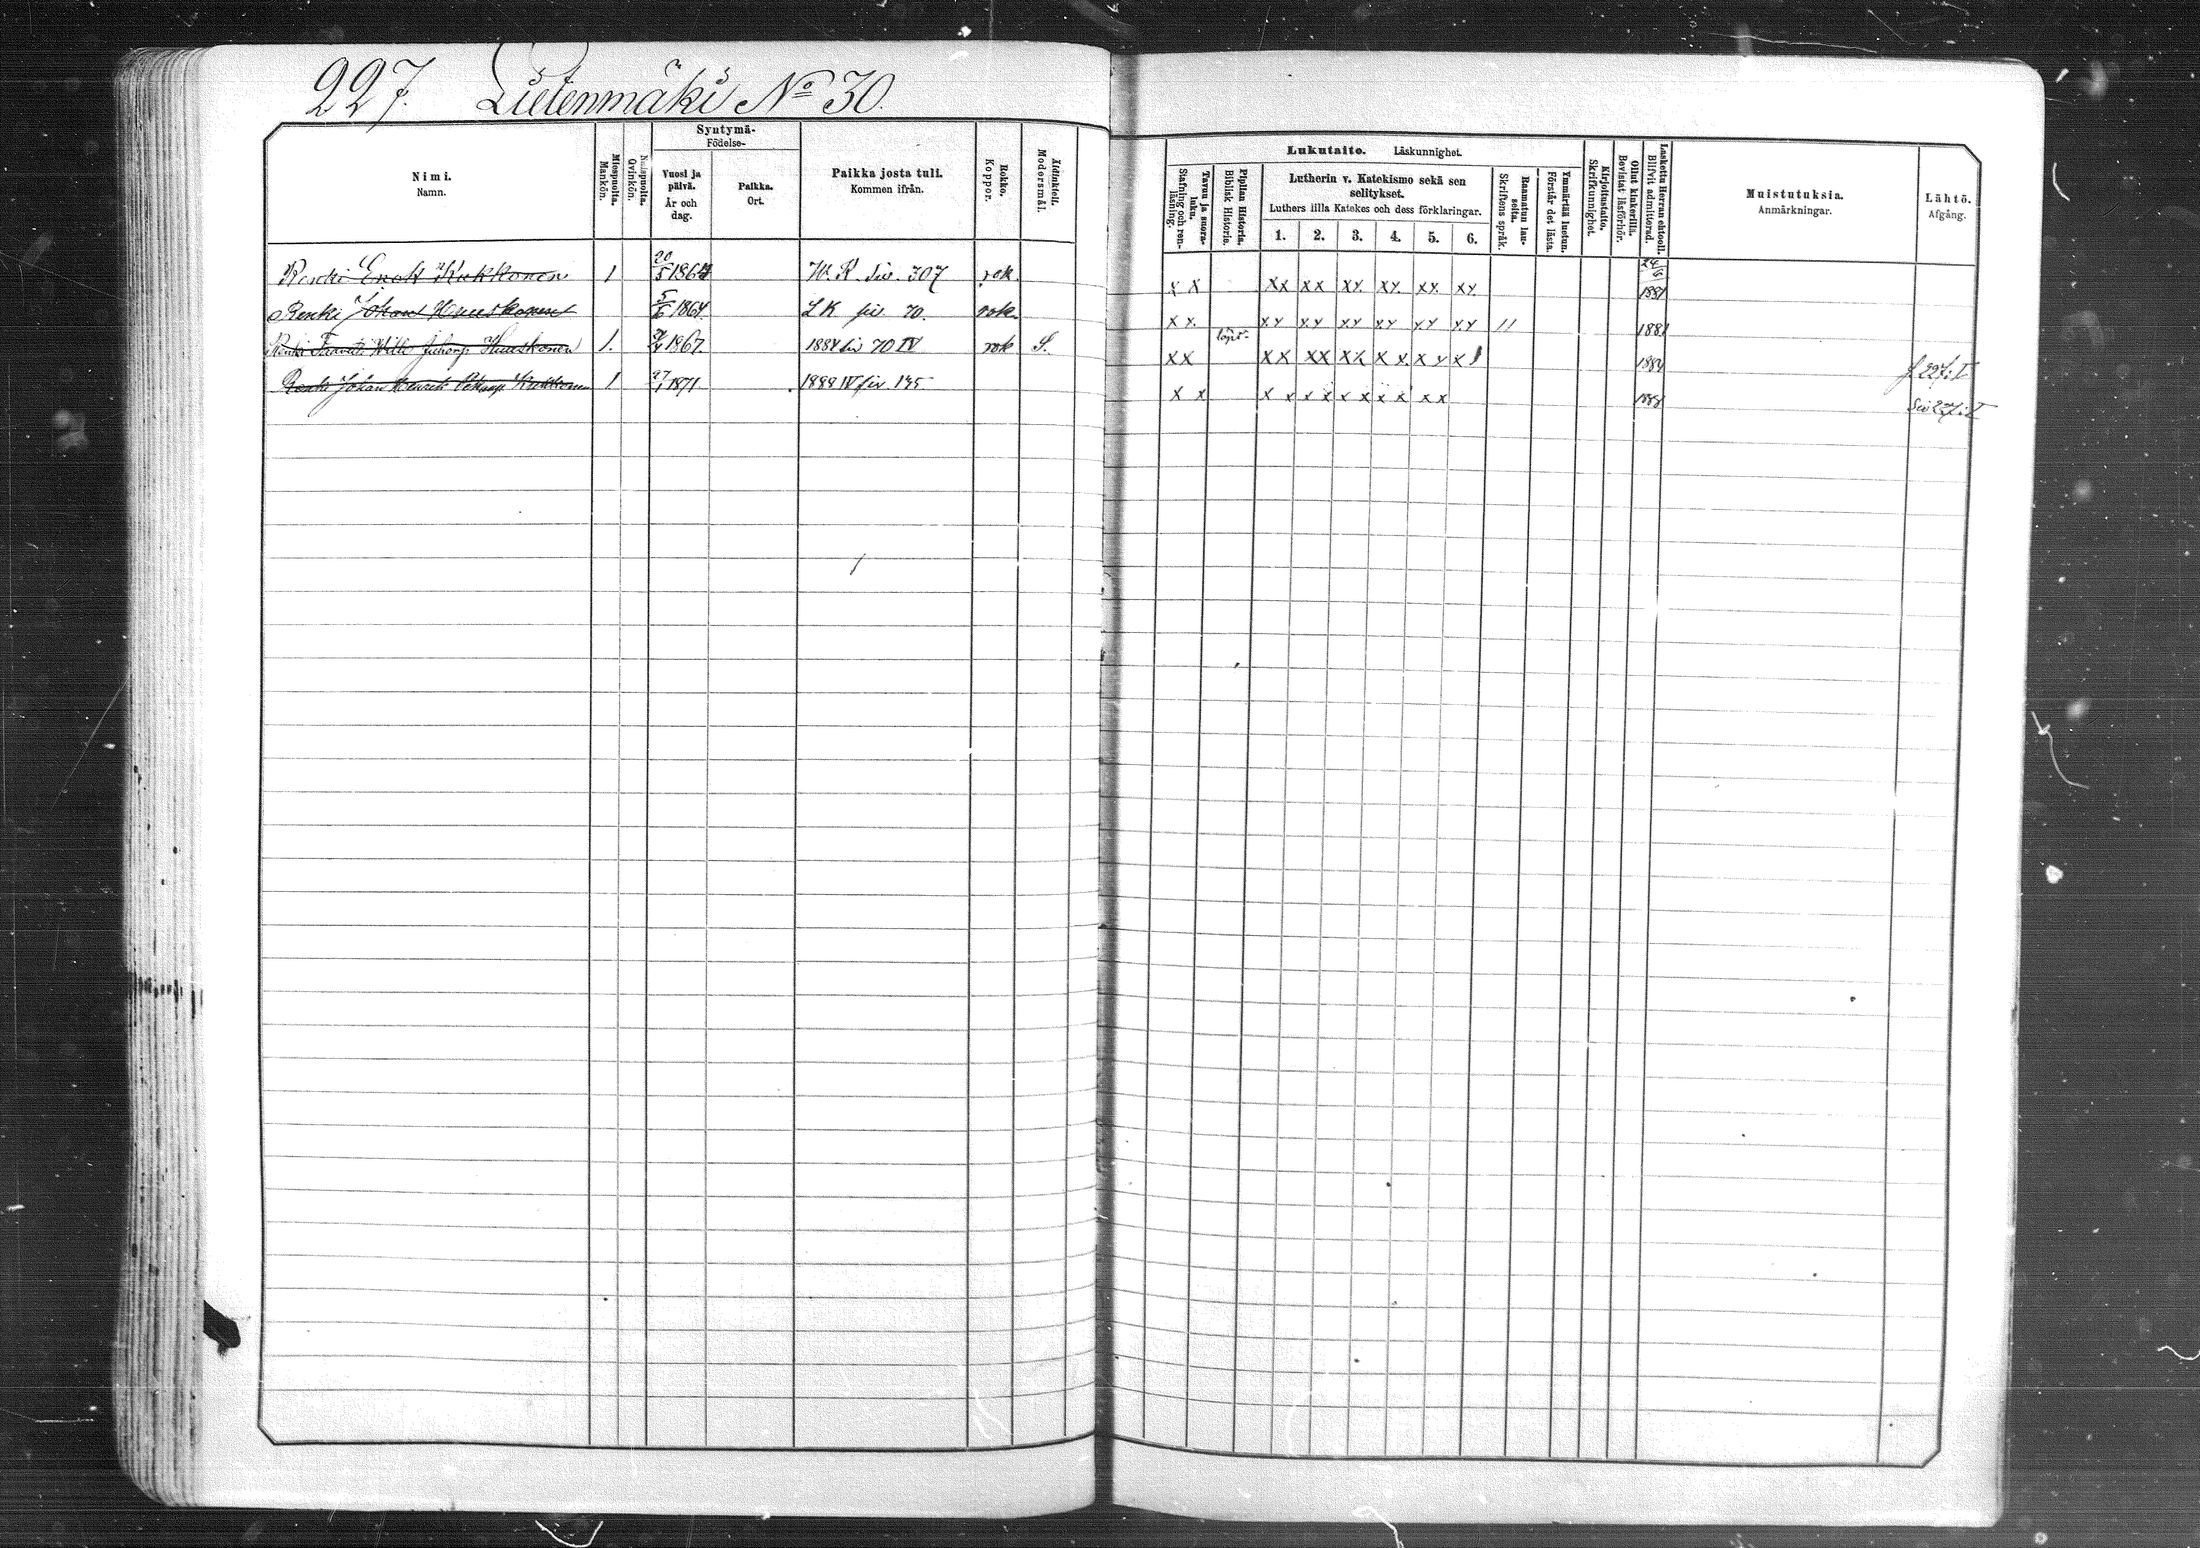 227. Lietenmäki No 30.
Nimi.
Namn.
Miespuolta.
Mankön.
Naispuolta.
Qvinkön.
Syntymä-
Födelse-
Vuosi ja
päivä.
År och
dag.
Paikka.
Ort.
Paikka josta tuli.
Kommen ifrån.
Rokko.
Koppor.
Äidinkieli.
Modersmål.
Lukutaito. Läskunnighet.
Tavuu ja suora-
luku.
Stafning och ren-
läsning.
Piplian Historia.
Biblisk Historie.
Lutherin v. Katekismo sekä sen
selitykset.
Luthers lilla Katekes och dess förklaringar.
1. 2. 3. 4. 5. 6.
Raamatun lau-
seita.
Skriftens språk.
Ymmärtää luetun.
Förstår det lästa.
Kirjoitustaito.
Skrifkunnighet.
Ollut kinkerillä.
Bevistat läsförhör.
Laskettu Herran ehtooll.
Blifvit admitterad.
Muistutuksia.
Anmärkningar.
Lähtö.
Afgång.
Renki Enok Kukkonen 1 20/5 1864 W. K. siv. 307 rok. x x xx xx xx. xx. xx. xx. 24/6 1881
Renki Johan Huuskonen 5/6 1864. LK siv. 70. rok. x x. xx xx xx xx xx xx 11 1881
Renki Taavetti Wille Juhanp. Huuskonen 1. 1867. 1884 siv 70 IV rok S. x x xx xx xx x x. x x x 1884 f. 227: I
Renki Johan Henrik Pekanp. Kukkonen 1 27/1 1871 1889 IV siv 135 x x x x x x x x x x x x 1888 siv 227: I